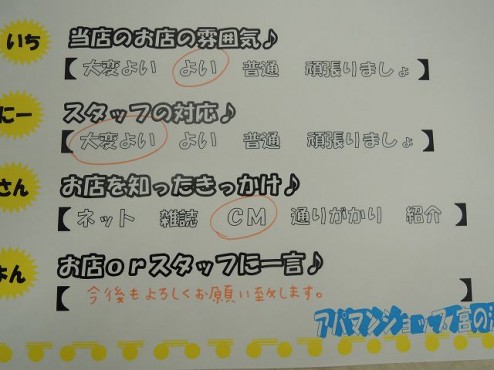 いち 当店のお店の雰囲気♪
【 大変よい よい 普通 頑張りましょ 】
にー スタッフの対応♪
【 大変よい よい 普通 頑張りましょ 】
さん お店を知ったきっかけ♪
【 ネット 雑誌 CM 通りがかり 紹介 】
よん お店orスタッフに一言♪
【 今後もよろしくお願い致します。 】
アパマンショップ宮の